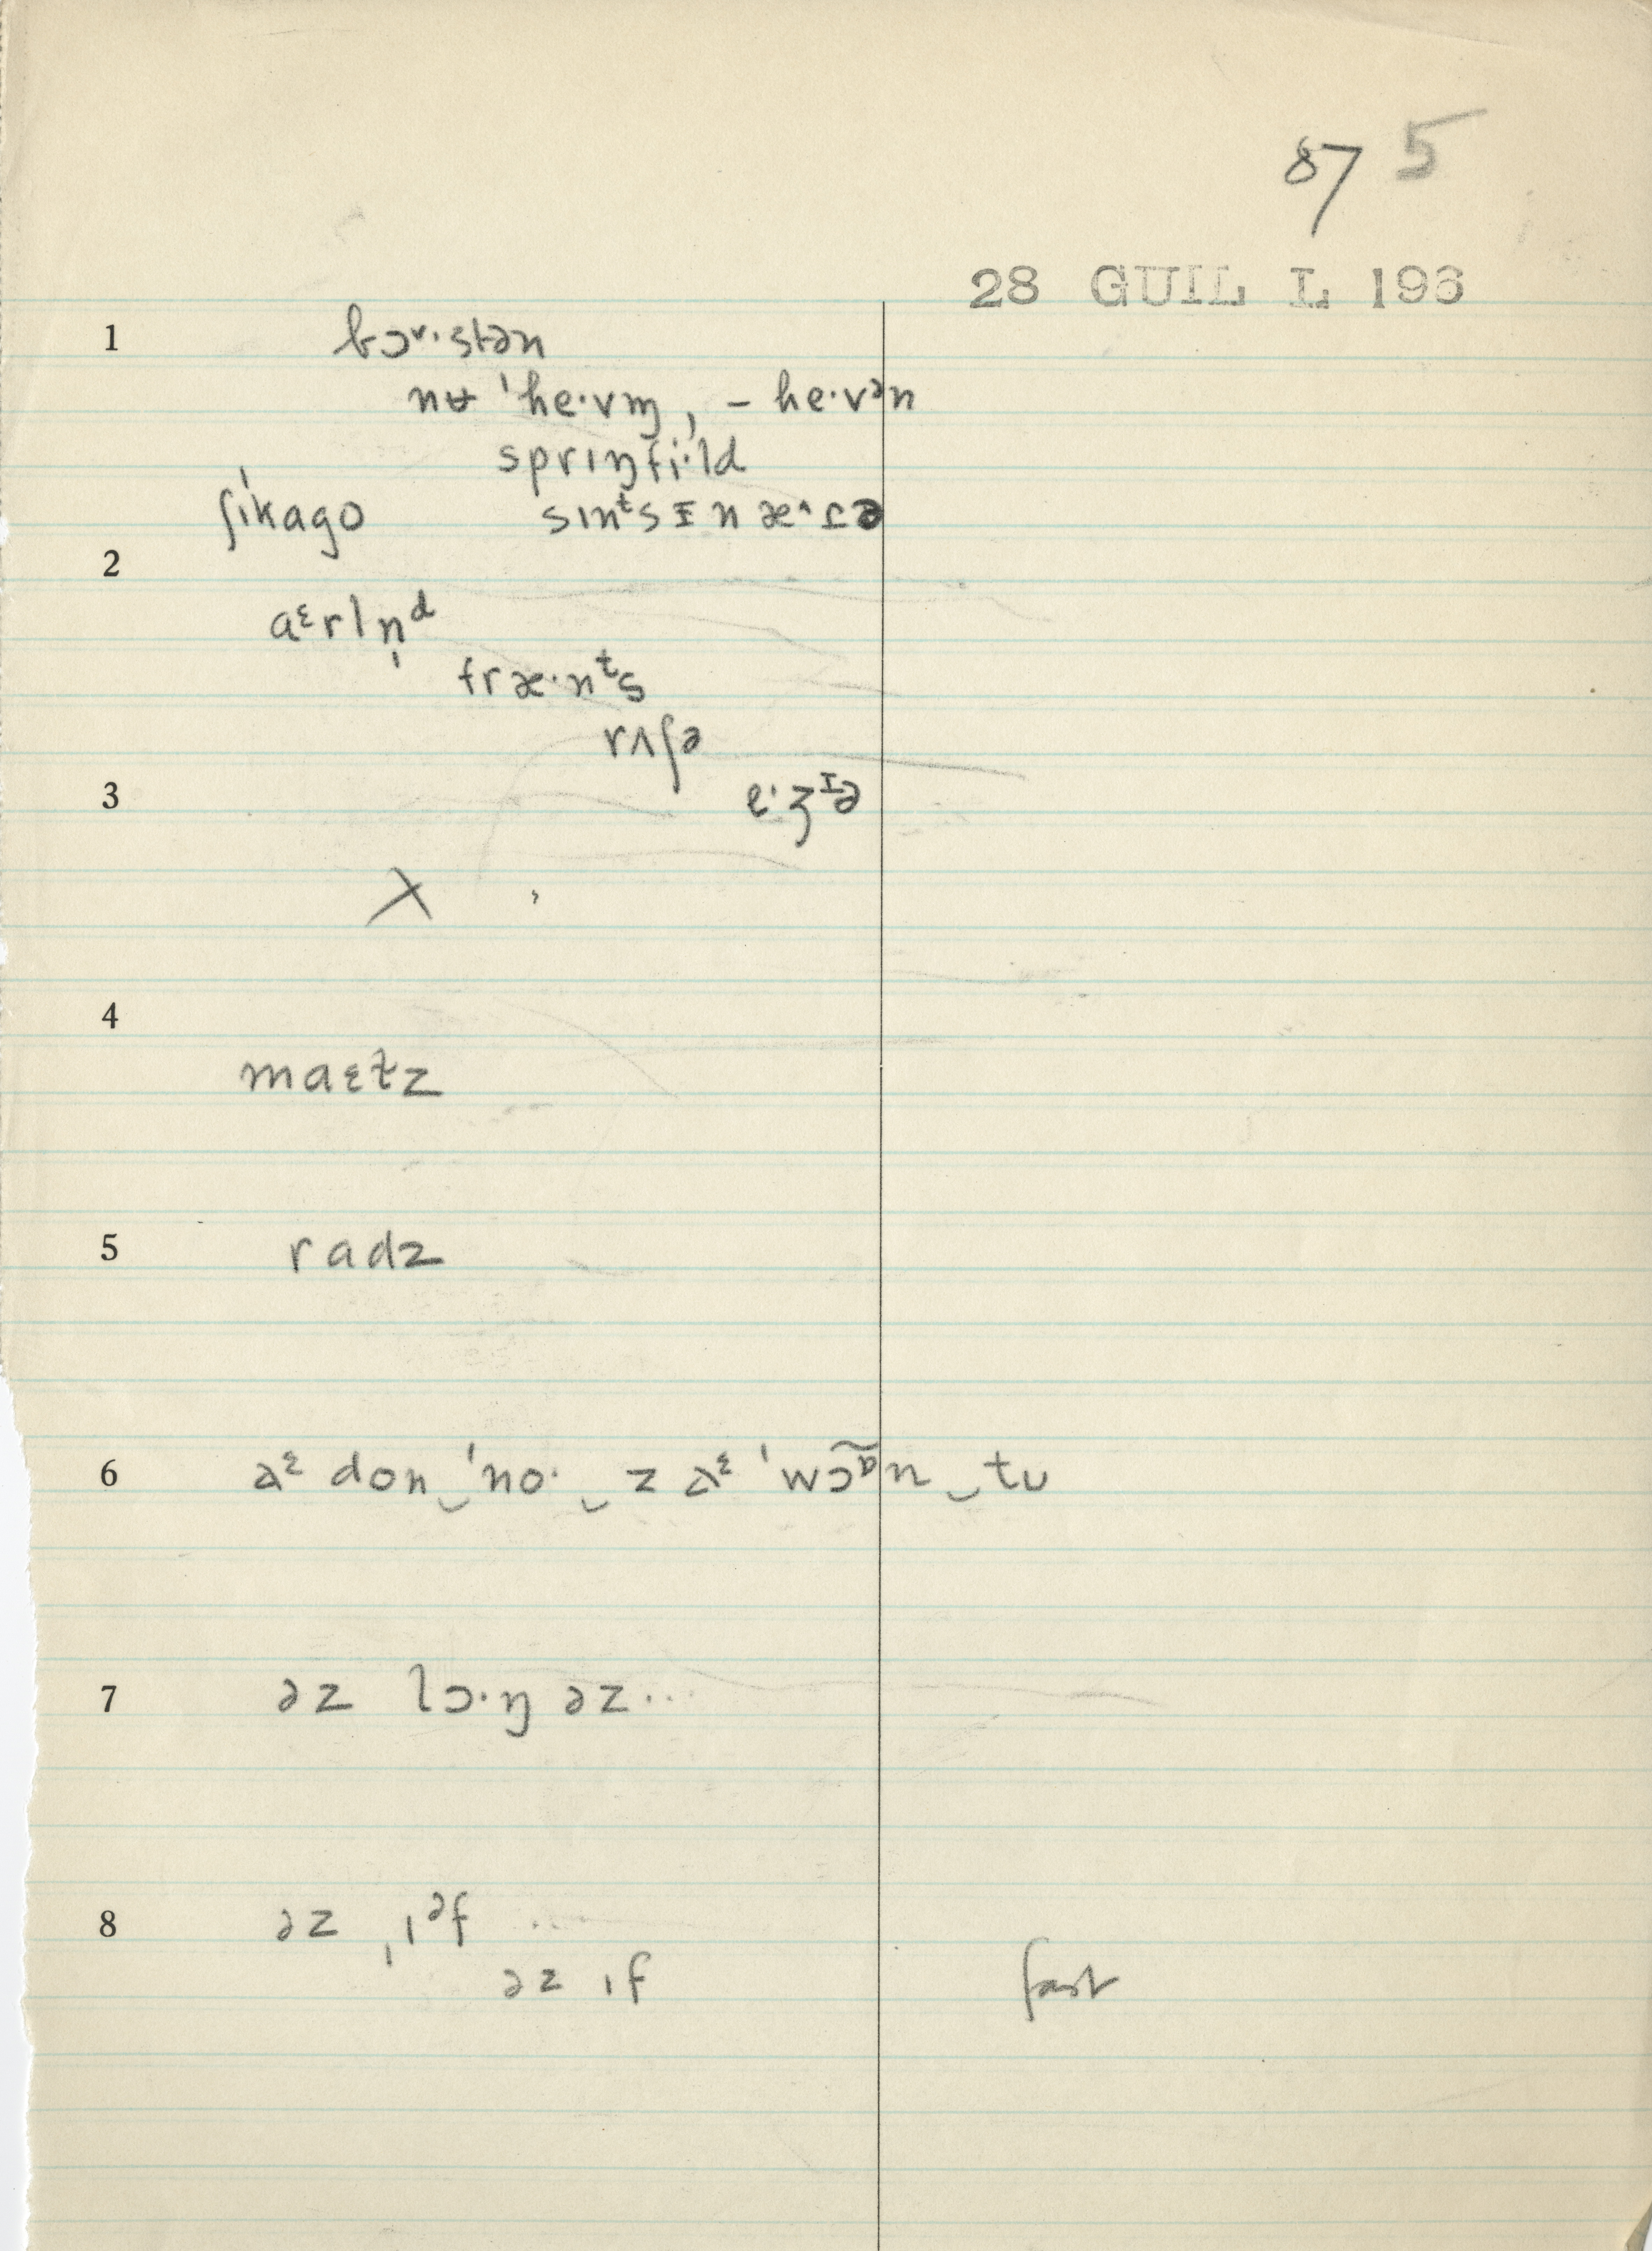 87 5
28 GUIL L 196
1 bɔ˅·stən
nʉ ˈhe·vm̩, – he·vᵊn
sprɪŋfi·ld
ʃɪkago sɪnᵗsᵻnæ^ɾə
2
aᵋrln̩ᵈ
fræ·nᵗs
rʌʃə
3 e·ʒᶦə
X
4
maɛt̬z
5 radz
6 aᵋ don‿ˈno·‿z aᵋ ˈwɔ̃ᶹn‿tʊ
7 əz lɔ·ŋ əz...
8 əz ˌɪᵊf ...
əz ɪf fast